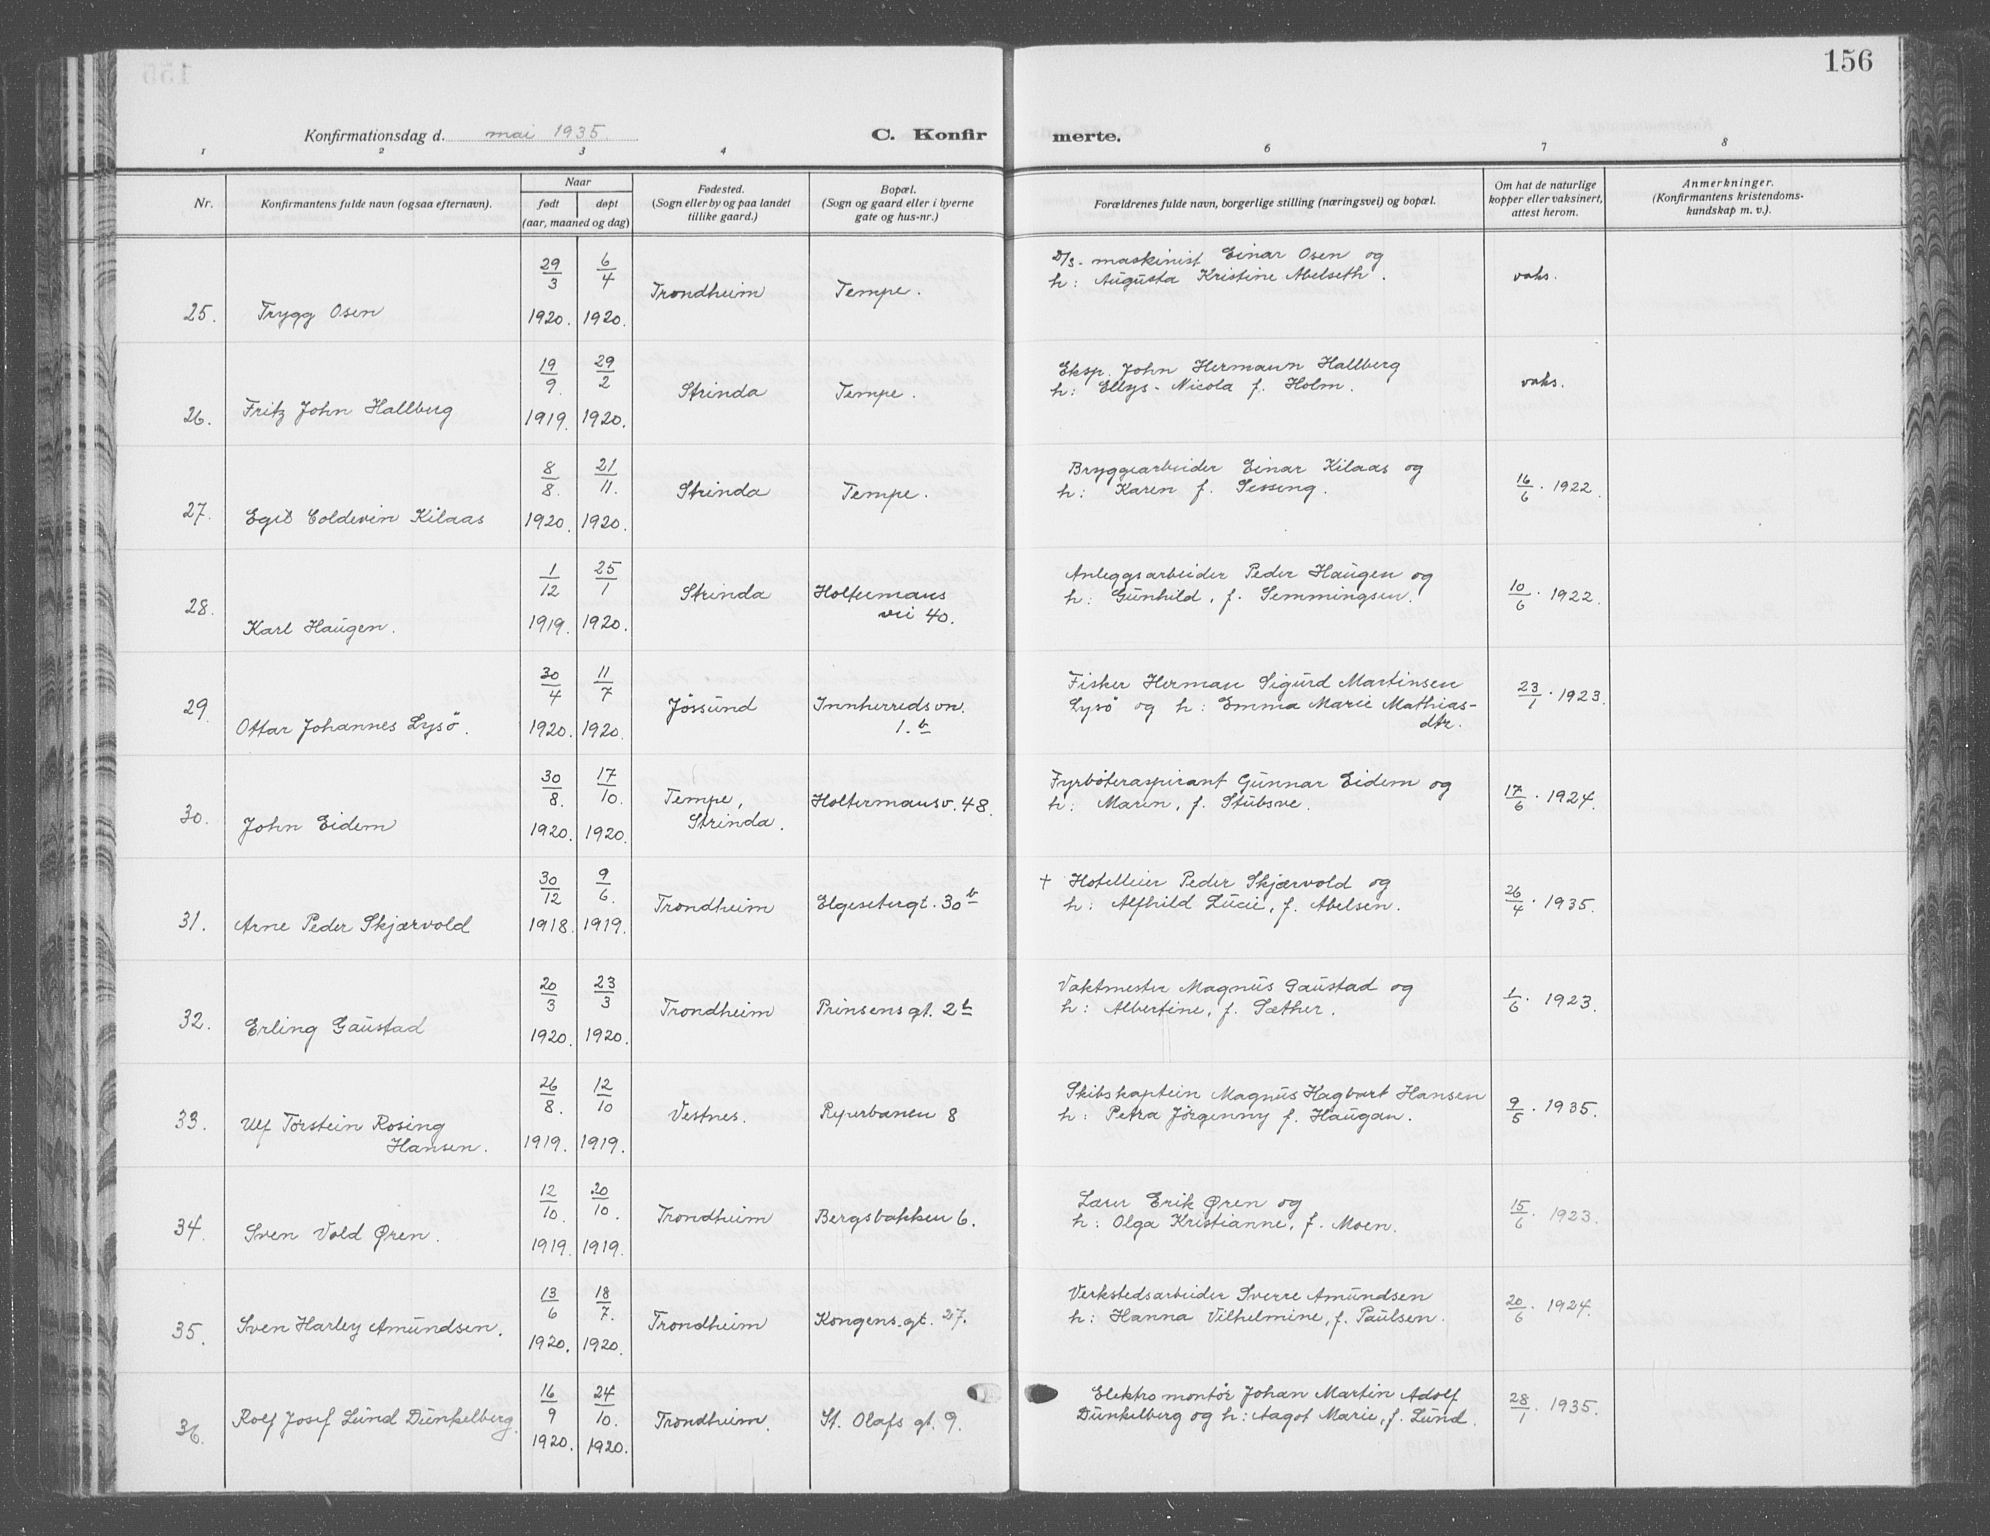 156
Konfirmationsdag d. mai 1935.
C. Konfir merte.
1 2 3 4 6 7 8
Nr.
Konfirmantens fulde navn (ogsaa efternavn).
Naar
født døpt
(aar, maaned og dag)
Fødested.
(Sogn eller by og paa landet
tillike gaard.)
Bopæl.
(Sogn og gaard eller i byerne
gate og hus-nr.)
Forældrenes fulde navn, borgerlige stilling (næringsvei) og bopæl.
Om hat de naturlige
kopper eller vaksinert,
attest herom.
Anmerkninger.
(Konfirmantens kristendoms-
kundskap m. v.).
25. Trygg Osen 29/3 1920. 6/4 1920. Trondheim Tempe. D/s- maskinist Einar Osen og
h: Augusta Kristine Abelseth. vaks.
26. Fritz John Hallberg 19/9. 1919. 29/2 1920. Strinda Tempe. Eksp. John Hermann Hallberg
h: Ellys-Nicola f. Holm. vaks.
27. Egil Coldevin Kilaas 8/8. 1920. 21/11. 1920. Strinda Tempe. Bryggearbeider Einar Kilaas og
h: Karen f. Sesseng. 16/6. 1922.
28. Karl Haugen. 1/12 1919. 25/1 1920. Strinda Holtermans
vei 40. Anleggsarbeider Peder Haugen og
h: Gunhild, f. Semmingsen. 10/6. 1922.
29. Ottar Johannes Lysö. 30/4 1920. 11/7 1920. Jössund Innherredsvn.
1.b Fisker Herman Sigurd Martinsen
Lysö og h: Emma Marie Mathias-
dtr. 23/1. 1923.
30. John Eidem 30/8. 1920. 17/10. 1920. Tempe,
Strinda. Holtermansv. 48. Fyrböteraspirant Gunnar Eidem og
h: Maren, f. Stubsve. 17/6. 1924.
31. Arne Peder Skjærvold 30/12 1918. 9/6. 1919. Trondheim Elgesetergt. 30b + Hotelleier Peder Skjærvold og
h: Alfhild Lucie, f. Abelsen. 26/4. 1935.
32. Erling Gaustad 20/3 1920. 23/3 1920. Trondheim Prinsensgt. 2b Vaktmester Magnus Gaustad og
h: Albertine, f. Sæther. 1/6. 1923.
33. Ulf Torstein Rosing
Hansen. 26/8. 1919. 12/10 1919. Vestnes. Reperbanen 8 Skibskaptein Magnus Hagbart Hansen
h: Petra Jørgenny f. Haugan. 9/5. 1935.
34. Sven Vold Øren. 12/10. 1919. 20/10. 1919. Trondheim Bergsbakken 6. Lærer Erik Øren og
h: Olga Kristianne, f. Moen. 15/6. 1923.
35. Sven Harley Amundsen. 13/6 1920. 18/7. 1920. Trondheim Kongens gt. 27. Verkstedsarbeider Sverre Amundsen
h: Hanna Vilhelmine, f. Paulsen. 20/6. 1924.
36. Rolf Josef Lund Dunkelberg. 16/9 1920. 24/10. 1920. Trondheim. St. Olafs gt. 9. Elektromontør Johan Martin Adolf
Dunkelberg og h: Aagot Marie, f. Lund. 28/1. 1935.